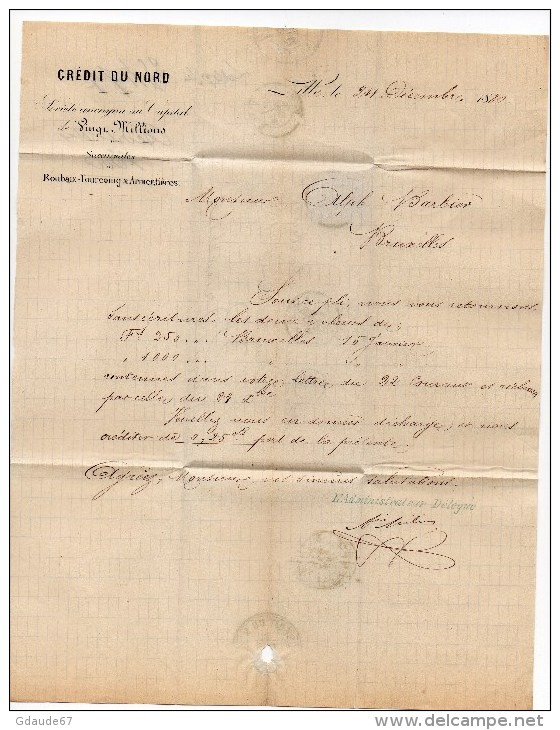 CRÉDIT DU NORD
Lille, le 24 Décembre 1880
Société anonyme au Capital
de Vingt Millions
Succursales
Roubaix-Tourcoing & Armentières.
Monsieur Alph. Barbier
Bruxelles
Sous ce pli, nous vous retournons
sans écritures les deux valeurs de:
Ft 250 .. Bruxelles 15 Janvier
" 1000 .. " " "
contenues dans votre lettre du 22 Courant et
par celle du 23 dto
Veuillez nous en donner décharge, et nous
créditer de 0,25 cts port de la présente.
Agréez, Monsieur, nos sincères salutations.
L'Administrateur Délégué
Gdaude67
www.delcampe.net